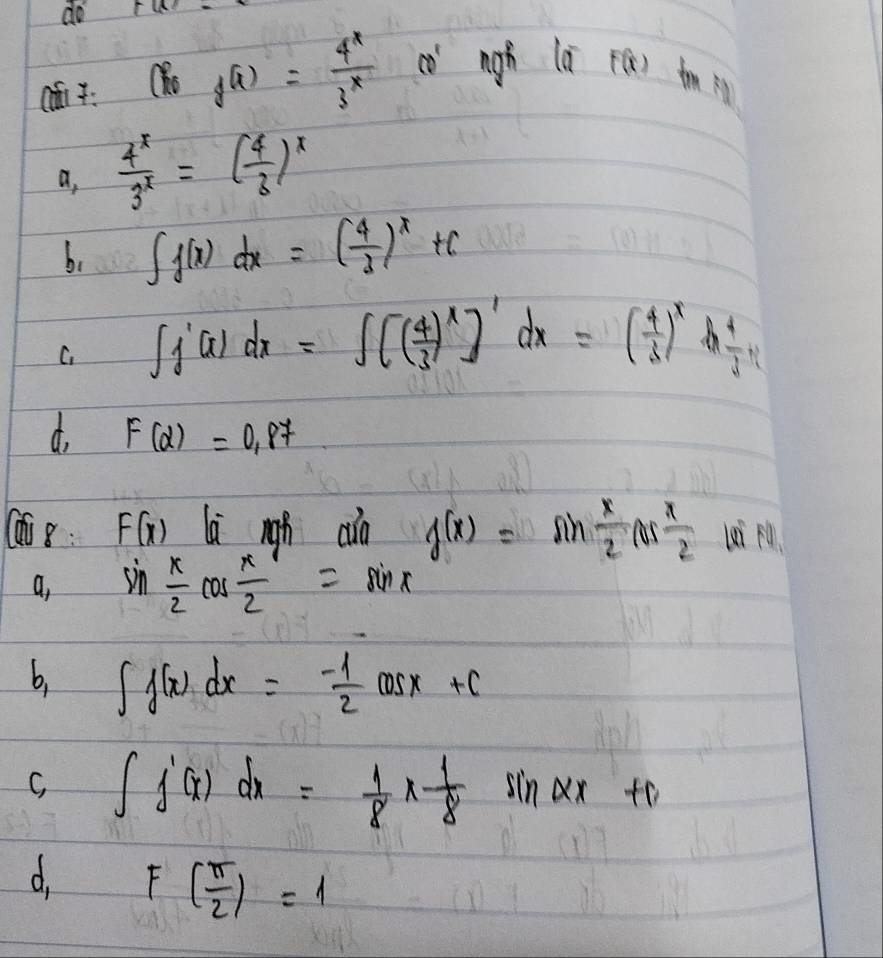 Câu 7: Cho f(x) = 4^x / 3^x có ngh là F(x) tìm
a, 4^x / 3^x = (4/3)^x
b, ∫ f(x) dx = (4/3)^x + C
c, ∫ f'(x) dx = ∫ [(4/3)^x]' dx = (4/3)^x ln 4/3 + c
d, F(2) = 0,87
Câu 8: F(x) là ngh của f(x) = sin x/2 cos x/2
a, sin x/2 cos x/2 = sin x
b, ∫ f(x) dx = -1/2 cos x + C
c, ∫ f'(x) dx = 1/8 x - 1/8 sin 2x + C
d, F(π/2) = 1